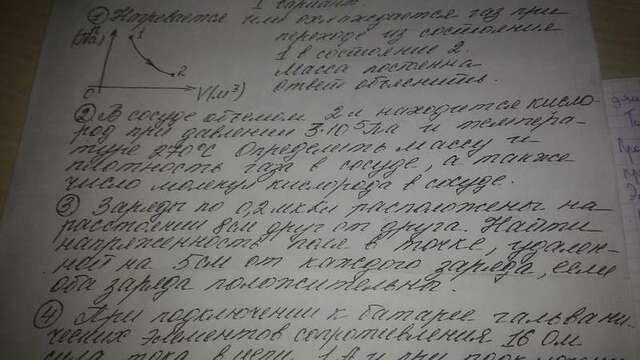 1 вариант.
① Нагревается или охлаждается газ при
переходе из состояния
1 в состояние 2.
Масса постоянна
ответ объяснить.
(Па)
1
2
0
V(м³)
② В сосуде объемом 2 л находится кисло-
род при давлении 3·10⁵ Па и темпера-
туре 270°С Определить массу и
плотность газа в сосуде, а также
число молекул кислорода в сосуде.
③ Заряды по 0,2 мкКл расположены на
расстоянии 8 см друг от друга. Найти
напряженность поля в точке, удален-
ной на 5 см от каждого заряда, если
оба заряда положительны.
④ При подключении к батарее гальвани-
ческих элементов сопротивления 16 Ом
сила тока в цепи 1 А и при